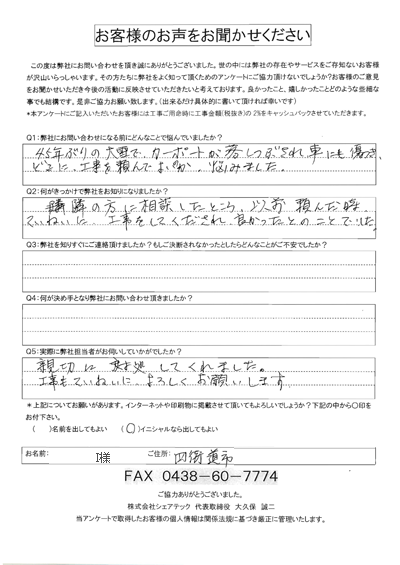 お客様のお声をお聞かせください
この度は弊社にお問い合わせを頂き誠にありがとうございました。世の中には弊社の存在やサービスをご存知ないお客様
が沢山いらっしゃいます。その方たちに弊社をよく知って頂くためのアンケートにご協力頂けないでしょうか？お客様のご意見
をお聞かせいただき今後の活動に反映させていただきたいと考えております。良かったこと、嬉しかったことどのような些細な
事でも結構です。是非ご協力お願い致します。（出来るだけ具体的に書いて頂ければ幸いです）
*本アンケートにご記入いただいたお客様には工事ご用命時に工事金額（税抜き）の2％をキャッシュバックさせていただきます。
Q1：弊社にお問い合わせになる前にどんなことで悩んでいましたか？
45年ぶりの大雪で、カーポートが落しつぶされ車にも傷つき、
どこに、工事を頼んでよいか。悩みました。
Q2：何がきっかけで弊社をお知りになりましたか？
隣の方に相談したところ、以前 頼んだ時、
ていねいに、工事をしてくだされ、良かったとのことでした。
Q3：弊社を知りすぐにご連絡頂けましたか？もしご決断されなかったとしたらどんなことがご不安でしたか？
Q4：何が決め手となり弊社にお問い合わせ頂きましたか？
Q5：実際に弊社担当者がお伺いしていかがでしたか？
親切に 対処してくれました。
工事もていねいに、よろしくお願いします
*上記についてお願いがあります。インターネットや印刷物に掲載させて頂いてもよろしいでしょうか？下記の中から〇印を
お付下さい。
（　）名前を出してもよい （〇）イニシャルなら出してもよい
お名前： I様 ご住所： 四街道市
FAX 0438-60-7774
ご協力ありがとうございました。
株式会社シェアテック 代表取締役 大久保 誠二
当アンケートで取得したお客様の個人情報は関係法規に基づき厳正に管理いたします。